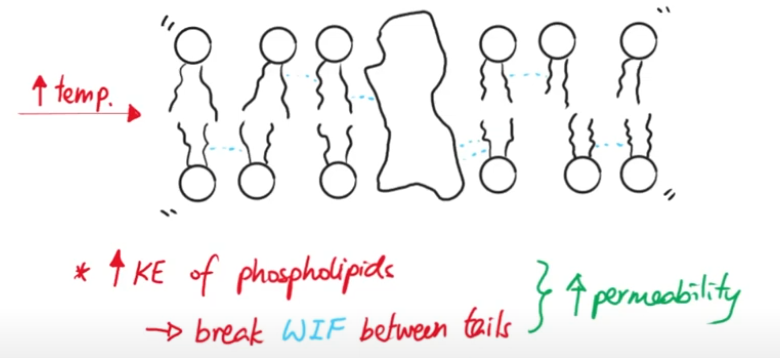 ↑ temp.
* ↑ KE of phospholipids
→ break WIF between tails } ↑ permeability